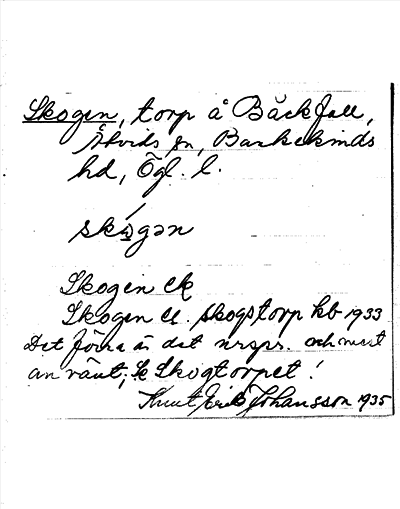 Skogen, torp å Bäckfall,
Åtvids sn, Bankekinds
hd, Ögl. l.
skógən
Skogen ek
Skogen el. skogstorp kb 1933
Det förra är det urspr. och mest
använt; Se Skogtorpet!
Knut Erik Johansson 1935